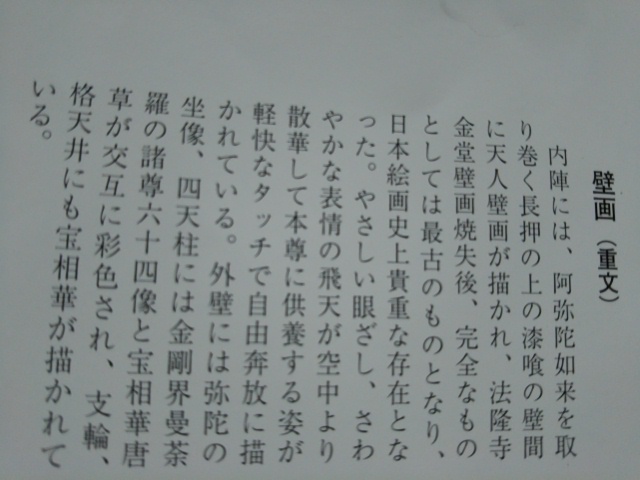 壁画（重文）
内陣には、阿弥陀如来を取
り巻く長押の上の漆喰の壁間
に天人壁画が描かれ、法隆寺
金堂壁画焼失後、完全なもの
としては最古のものとなり、
日本絵画史上貴重な存在とな
った。やさしい眼ざし、さわ
やかな表情の飛天が空中より
散華して本尊に供養する姿が
軽快なタッチで自由奔放に描
かれている。外壁には弥陀の
坐像、四天柱には金剛界曼荼
羅の諸尊六十四像と宝相華唐
草が交互に彩色され、支輪、
格天井にも宝相華が描かれて
いる。